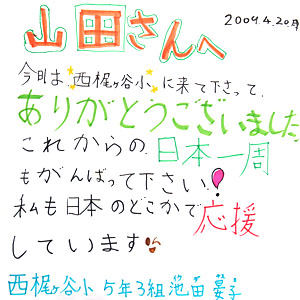 2009.4.20月
山田さんへ
今日は、西梶ヶ谷小に来て下さって、
ありがとうございました
これからの日本一周
もがんばって下さい!
私も日本のどこかで応援
しています
西梶ヶ谷小 5年3組